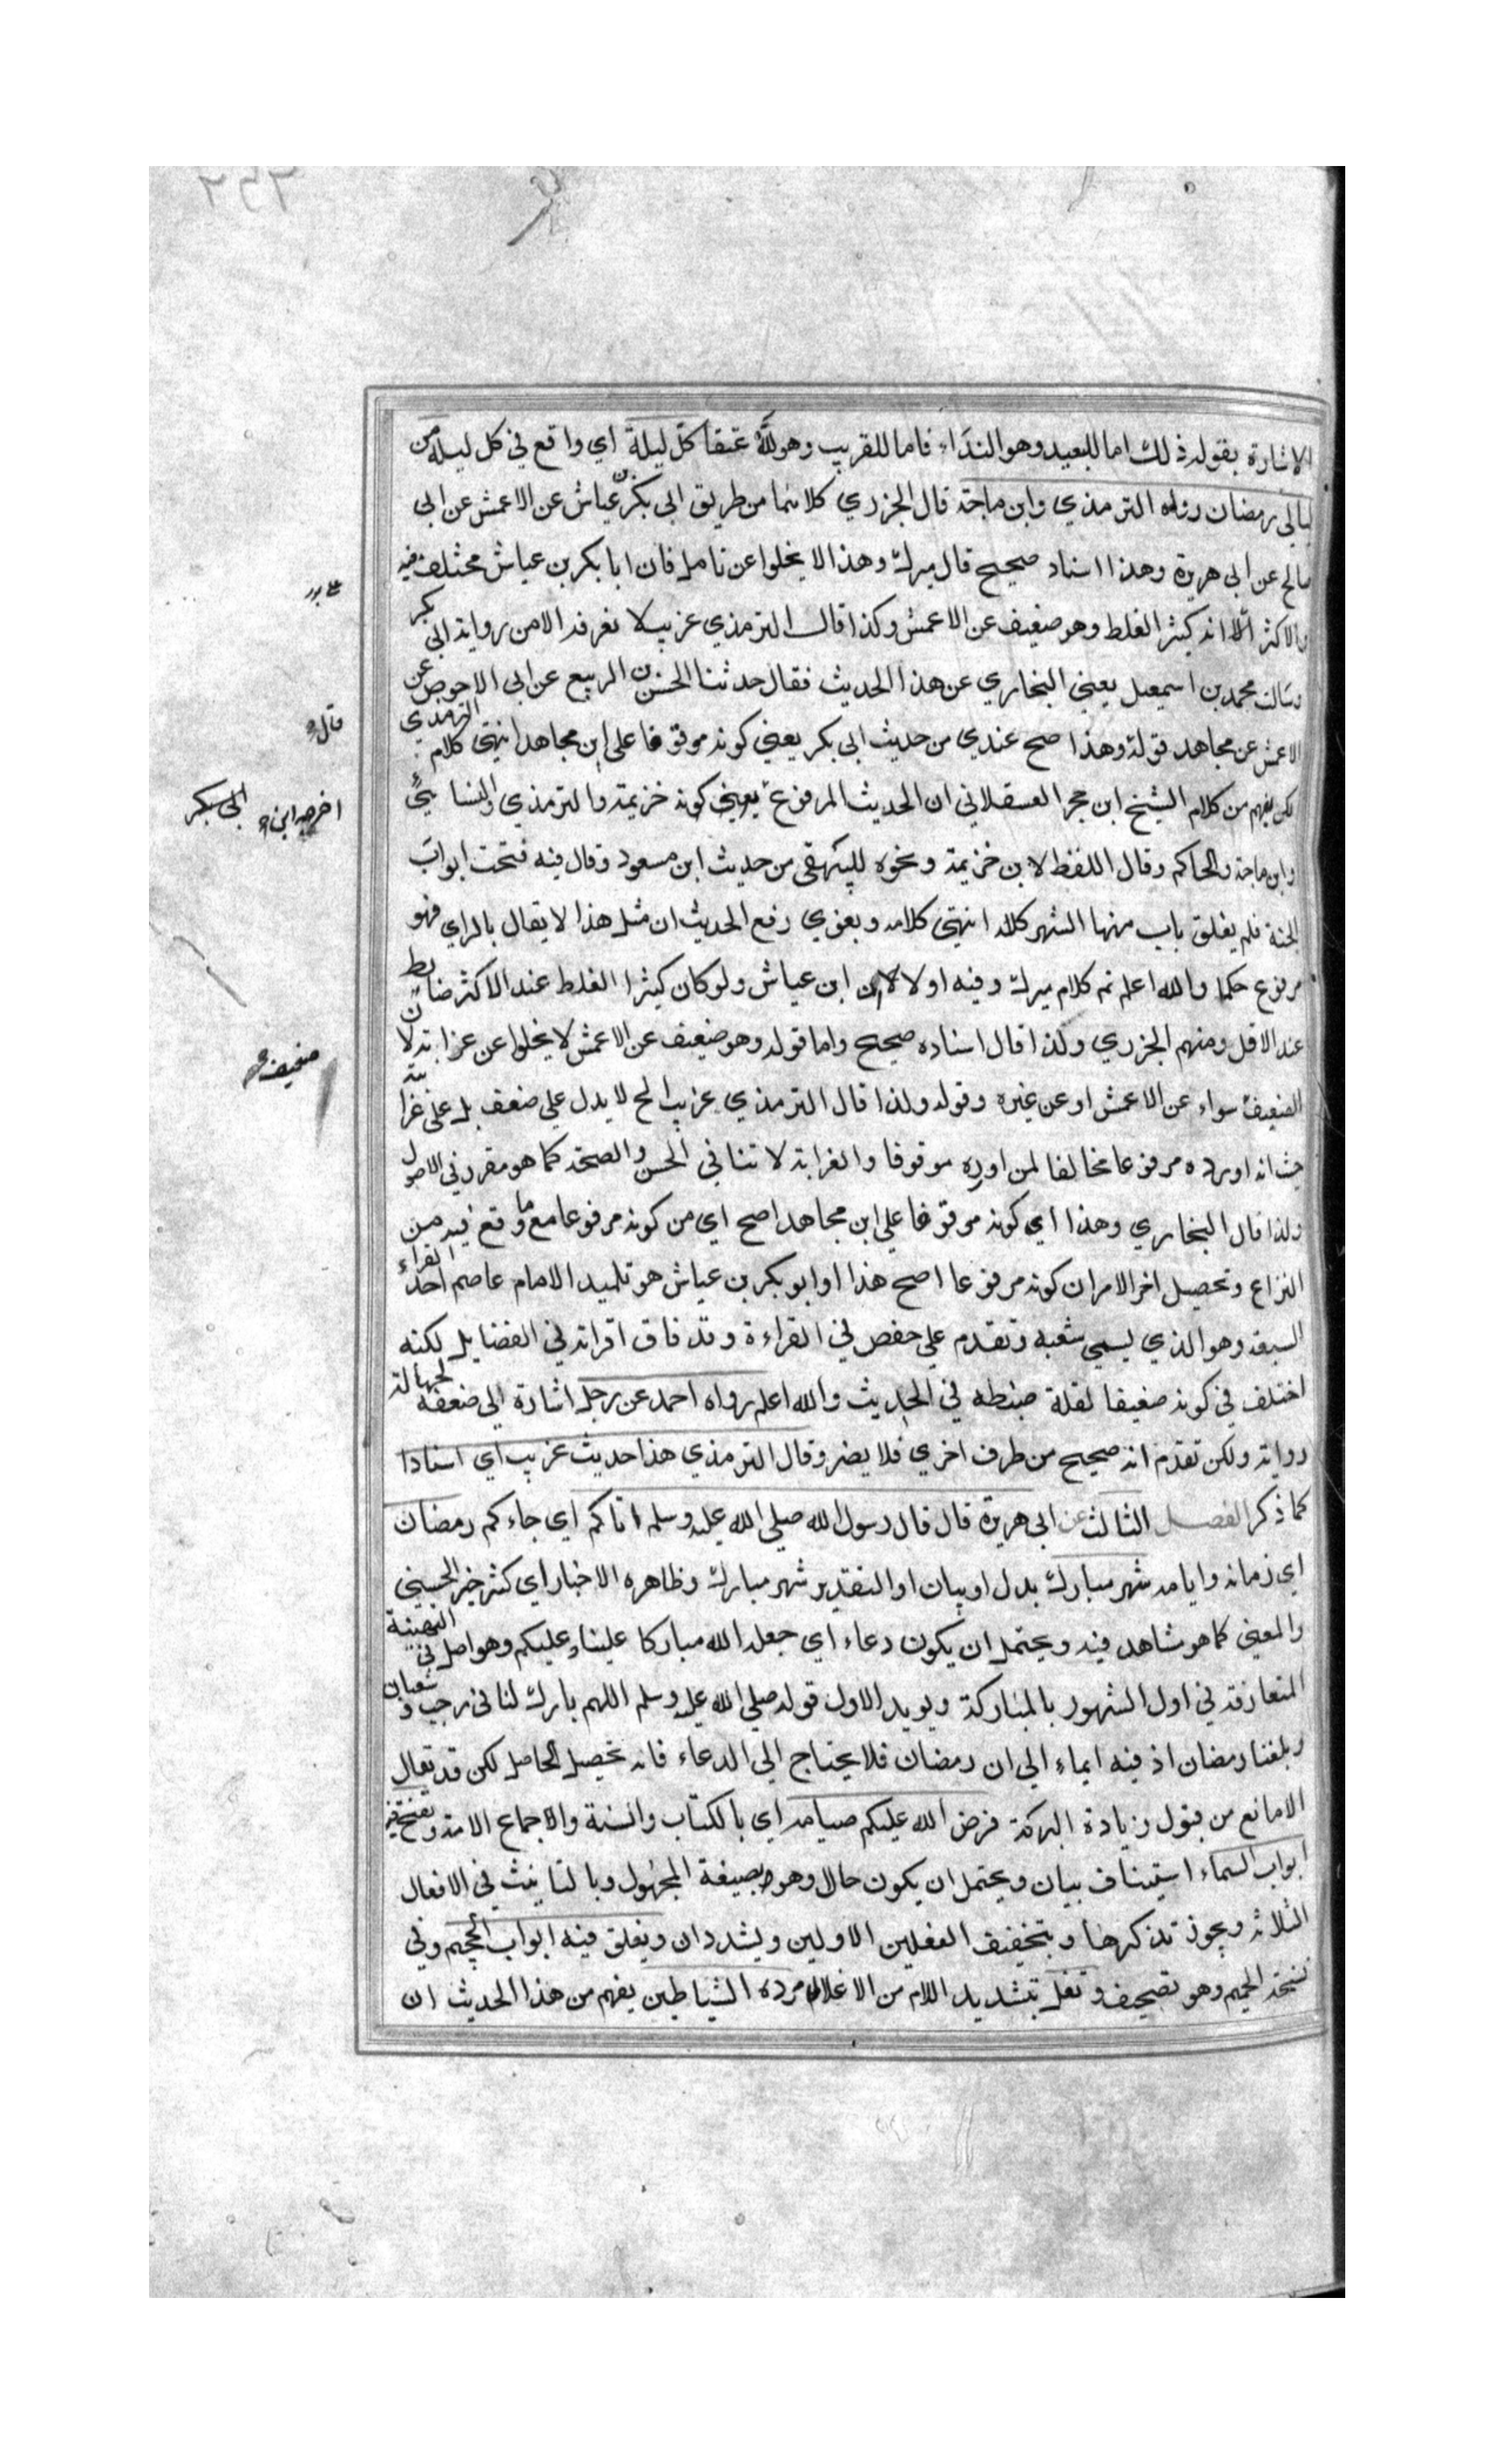 الاشارة بقوله ذلك اما للبعيد وهو النداء فاما للقريب وهو لله عتقا كل ليلة اي واقع في كل ليلة من
ليالي رمضان رواه الترمذي وابن ماجة قال الجزري كلاهما من طريق ابي بكر بن عياش عن الاعمش عن ابي
صالح عن ابي هريرة وهذا اسناد صحيح قال ميرك وهذا لا يخلوا عن تامل فان ابا بكر بن عياش مختلف فيه
والاكثر الا انه كثير الغلط وهو ضعيف عن الاعمش وكذا قال الترمذي غريب لا نعرفه الا من رواية ابي بكر
وسالت محمد بن اسمعيل يعني البخاري عن هذا الحديث فقال حدثنا الحسن بن الربيع عن ابي الاحوص عن
الاعمش عن مجاهد قوله وهذا صح عندي من حديث ابي بكر يعني كونه موقوفا على ابن مجاهد انتهى كلام الترمذي
قال
لكن يفهم من كلام الشيخ ابن حجر العسقلاني ان الحديث المرفوع يعني كونه خزيمة والترمذي والنسائي
اخرجه ابن ابي بكر
وابن ماجة والحاكم وقال اللفظ لابن خزيمة ونحوه للبيهقي من حديث ابن مسعود وقال فيه فتحت ابواب
الجنة فلم يغلق باب منها الشهر كله انتهى كلامه ويقوي رفع الحديث ان مثل هذا لا يقال بالراي فهو
مرفوع حكما والله اعلم تم كلام ميرك وفيه اولا لان ابن عياش ولو كان كثيرا الغلط عند الاكثر ضابط
عند الاقل ومنهم الجزري ولذا قال اسناده صحيح واما قوله وهو ضعيف عن الاعمش لا يخلوا عن غرابة لان
ضعيف
الضعيف سواء عن الاعمش او عن غيره وقوله ولذا قال الترمذي غريب الخ لا يدل على ضعف بل على غرابته
حيث انه اورده مرفوعا مخالفا لمن اورده موقوفا والغرابة لا تنافي الحسن والصحة كما هو مقرر في الاصول
ولذا قال البخاري وهذا اي كونه موقوفا على ابن مجاهد اصح اي من كونه مرفوعا مع ما وقع فيه من
النزاع وتحصيل اخر الامر ان كونه مرفوعا اصح هذا او ابو بكر بن عياش هو تلميذ الامام عاصم احد القراء
السبعة وهو الذي يسمى شعبه وتقدم على حفص في القراءة وقد فاق اقرانه في الفضايل لكنه
اختلف في كونه ضعيفا لقلة ضبطه في الحديث والله اعلم رواه احمد عن رجل اشارة الى ضعفه لجهالة
رواته ولكن تقدم انه صحيح من طرف اخري فلا يضر وقال الترمذي هذا حديث غريب اي اسنادا
كما ذكر الفصل الثالث عن ابي هريرة قال قال رسول الله صلى الله عليه وسلم اتاكم اي جاءكم رمضان
اي زمانه وايامه شهر مبارك بدل او بيان او التقدير شهر مبارك وظاهره الاخبار اي كثر خير الحسيني
والمعني كما هو شاهد فيه ويحتمل ان يكون دعاء اي جعله الله مباركا علينا وعليكم وهو اصل في التهنية
المتعارفة في اول الشهور بالمباركة ويويد الاول قوله صلى الله عليه وسلم اللهم بارك لنا في رجب وشعبان
وبلغنا رمضان اذ فيه ايماء الى ان رمضان فلا يحتاج الى الدعاء فانه تحصيل الحاصل لكن قد يقال
الامانع من قبول زيادة البركة فرض الله عليكم صيامه اي بالكتاب والسنة والاجماع الامة وتفتح فيه
ابواب السماء استيناف بيان ويحتمل ان يكون حال وهو بصيغة المجهول وبالتانيث في الافعال
الثلاثة ويجوز تذكيرها وبتخفيف الفعلين الاولين ويشددان ويغلق فيه ابواب الجحيم وفي
نسخة الحميم وهو تصحيف وتغل بتشديد اللام من الاغلال مردة الشياطين يفهم من هذا الحديث ان